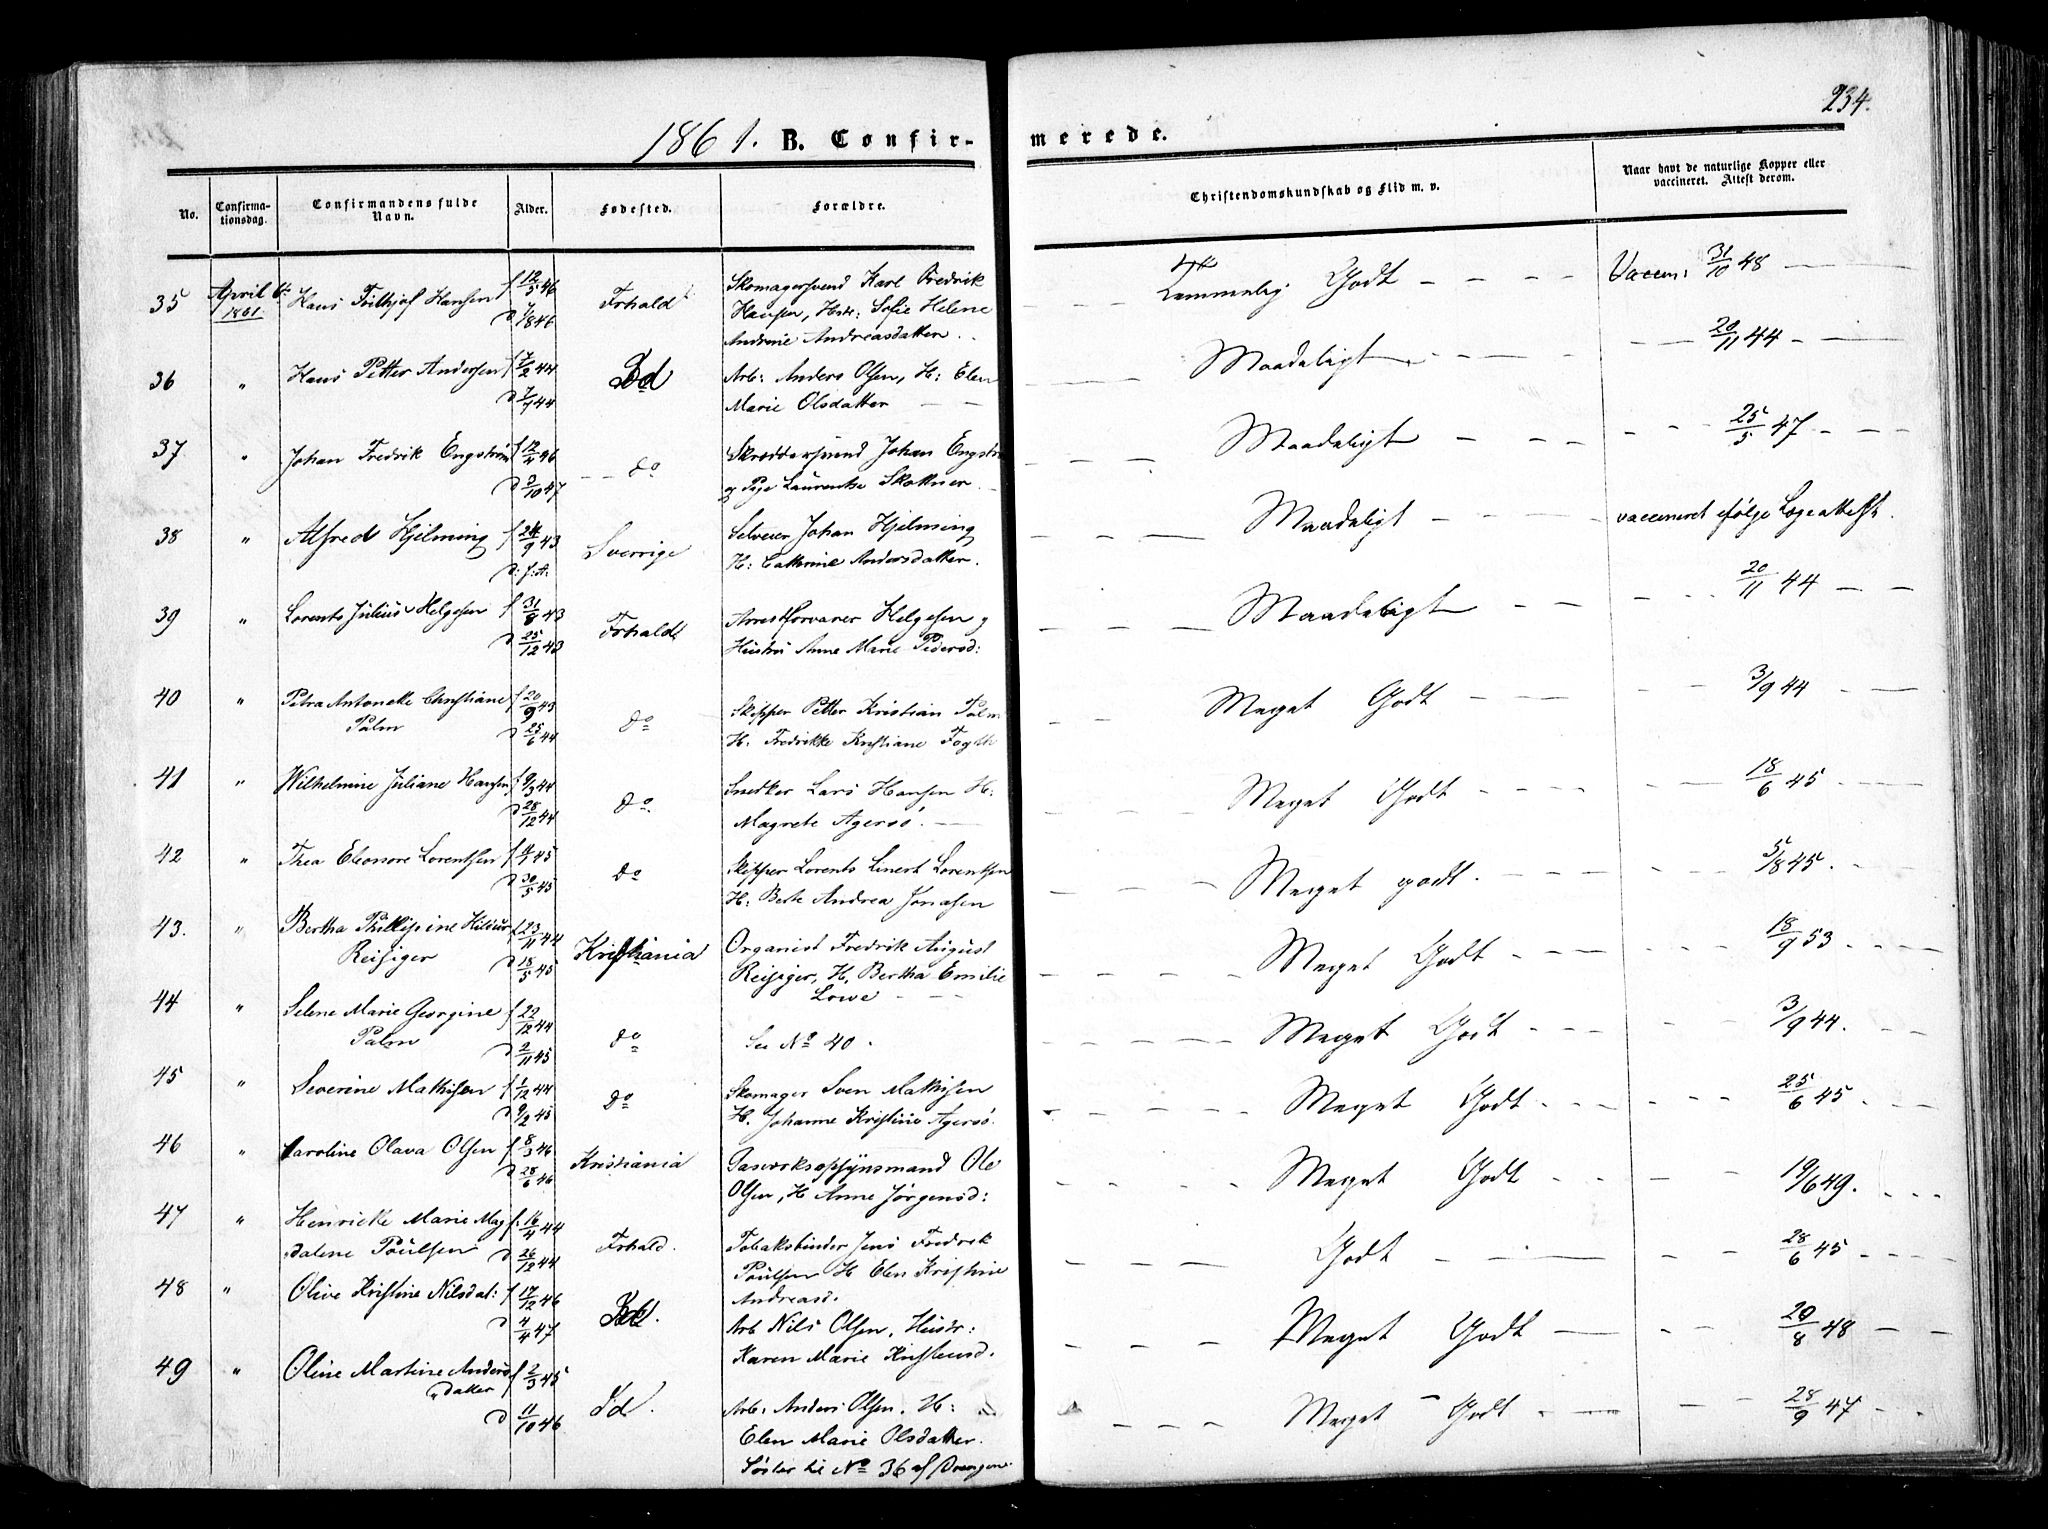 234.
1861. B. Confirmerede.
No. Confirmationsdag. Confirmandens fulde Navn. Alder. Fødested. Forældre. Christendomskundskab og Flid m. v. Naar havt de naturlige Kopper eller vaccineret. Attest derom.
35 April 1861. Hans Frithjof Hansen f 12/5 46 Frhald Skomagersvend Karl Fredrik Godt Vaccin: 31/10 48
Hansen, Hstr: Sofie Helene
Andrine Andreasdatter.
36 " Hans Petter Andersen f 7/2 44 Id Arb: Anders Olsen, H: Elen Maadeligt 20/11 44
Marie Olsdatter
37 " Johan Fredrik Engström f 12/4 46 do Skreddersvend Johan Engström Maadeligt 25/5 47
d 3/10 47 og Pige Laurentse Skottner
38 " Alfred Hjelming f 24/9 43 Sverrige Selveier Johan Hjelming Maadeligt vaccineret ifølge Lægeattest.
d: f: A: H: Cathrine Andersdatter.
39 " Lorents Julius Helgesen f 31/8 43 Frhald Arrestforvarer Helgesen og Maadeligt 20/11 44
d 25/12 43 Hustru Anne Marie Pedersd:
40 " Petra Antonette Christiane f 20/9 43 do Skipper Petter Kristian Palm Meget Godt 3/9 44
Palm d 25/6 44 H: Fredrikke Kristiane Fogth
41 " Wilhelmine Juliane Hansen f 9/3 44 do. Snedker Lars Hansen H: Meget Godt 18/6 45
d 28/12 44 Magrete Agersö.
42 " Thea Eleonore Lorentsen do Skipper Lorents Linert Lorentsen Meget godt. 5/8 45.
d 30/5 45 H: Berte Andrea Jonasen
43. " Bertha Phillipine f 23/11 44 Kristiania Organist Fredrik August Meget Godt 18/9 53
Reissiger d 18/5 45 Reissiger, H. Bertha Emilie
Lowe
44 " Selene Marie Georgine f 22/12 44 do See No 40. Meget Godt 3/9 44.
Palm d 2/11 45
45 " Severine Mathisen f 1/12 44 do Skomager Sven Mathisen Meget Godt 25/6 45
d 9/2 45 H. Johanne Kristine Agersö.
46 " Karoline Olava Olsen f 8/3 46 Kristiania Gasværksopsynsmand Ole Meget Godt 19/6 49.
d 28/6 46 Olsen, H Anne Jörgensd:
47 " Henrikke Marie Mag f. 16/4 44 Frhald. Tobaksbinder Jens Fredrik Godt 28/6 45
dalene Poulsen d 26/12 44 Poulsen H Elen Kristine
Andreasd.
48 " Olive Kristine Nilsdat: f 17/12 46 Id. Arb Nils Olsen, Hustr: Meget Godt 20/8 48
d 4/4 47 Karen Marie Kristensd.
49 " Oline Martine Anders f 2/3 45 Id. Arb: Anders Olsen, H: Meget Godt 28/9 47
datter d 11/10 46 Elen Marie Olsdatter.
Söster til No 36 af Drengene.